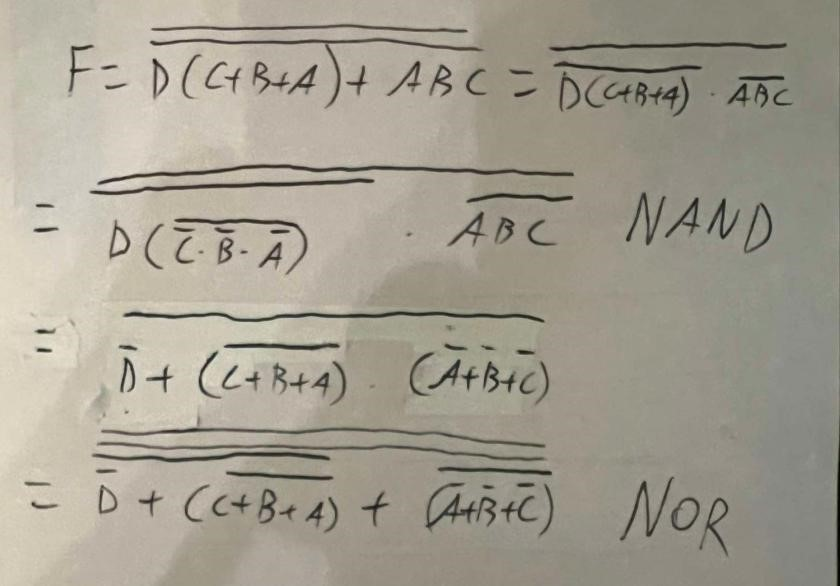 F = \overline{\overline{D(C+B+A)+ABC}} = \overline{\overline{D(C+B+A)} \cdot \overline{ABC}}
= \overline{\overline{D(\overline{\bar{C}\cdot\bar{B}\cdot\bar{A}})} \cdot \overline{ABC}} NAND
= \overline{\bar{D}+(\overline{C+B+A}) \cdot (\bar{A}+\bar{B}+\bar{C})}
= \overline{\overline{\overline{\bar{D}+(\overline{C+B+A})+(\overline{\bar{A}+\bar{B}+\bar{C}})}}} NOR